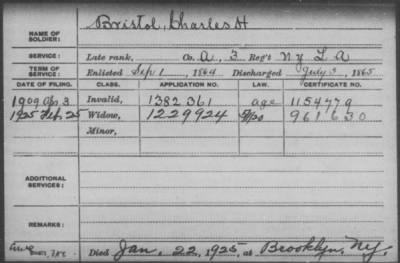 NAME OF SOLDIER: Bristol, Charles H
SERVICE: Late rank, Co. A, 3 Reg't NY L A
TERM OF SERVICE: Enlisted Sep 1, 1864 Discharged July 3, 1865
DATE OF FILING. CLASS. APPLICATION NO. LAW. CERTIFICATE NO.
1909 Apr 3 Invalid, 1382361 age 1154779
1925 Feb. 25 Widow, 1229924 961630
Minor,
ADDITIONAL SERVICES:
REMARKS:
Died Jan. 22, 1925, at Brooklyn, NY.